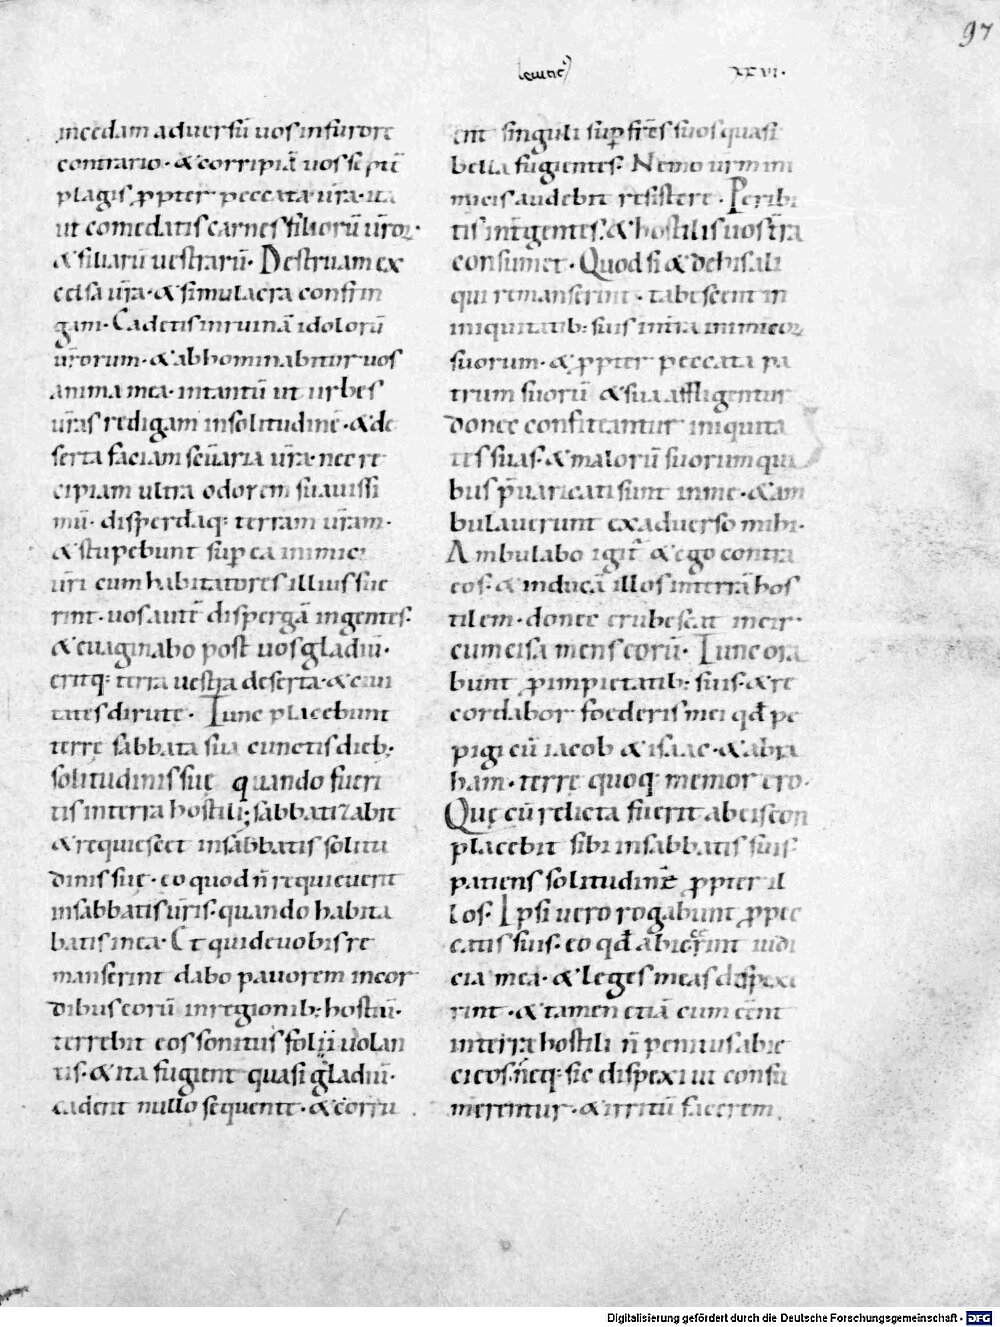 97
leuitic(us)
XXVI.
incedam aduersū uos infurore
contrario· & corripiā uos septē
plagis ꝓpter peccata ūra· ita
ut comedatis carnes filiorū ūroꝝ·
& filiarū uestrarū· Destruam ex
celsa ūra· & simulacra confrin
gam· Cadetis inruinā idolorū
ūrorum· & abhominabitur uos
anima mea· intantū ut urbes
ūras redigam insolitudinē· & de
serta faciam scūaria ūra· nec re
cipiam ultra odorem suauissi
mū· disperdāq; terram ūram·
& stupebunt sup̄ ea inimici
ūri cum habitatores illius fue
rint· uos autē dispergā ingentes·
& euaginabo post uos gladiū·
eritq; terra uestra deserta· & ciui
tates dirutę· Tunc placebunt
terrę sabbata sua cunctis dieb;
solitudinis suę quando fueri
tis interra hostili; sabbatizabit
& requiescet insabbatis solitu
dinis suę· eo quod n̄ requieuerit
insabbatis ūris· quando habita
batis inea· Et qui deuobis re
manserint dabo pauorem incor
dibus eorū inregionib; hostiū·
terrebit eos sonitus folii uolan
tis· & ita fugient quasi gladiū·
cadent nullo sequente· & corru
ent singuli sup̄ fr̄es suos quasi
bella fugientes· Nemo ūrm ini
micis audebit resistere· Peribi
tis int̄ gentes· & hostilis uos tr̄a
consumet· Quod si & debis ali
qui remanserint· tabescent in
iniquitatib; suis intr̄a inimicoꝝ
suorum· & ꝓpter peccata pa
trum suorū & sua affligentur
donec confiteantur iniquita
tes suas· & malorū suorum qui
bus p̄uaricati sunt inme· & am
bulauerunt exaduerso mihi·
Ambulabo igit̄ & ego contra
eos· & inducā illos interrā hos
tilem· donec erubescat incir
cumcisa mens eorū· Tunc ora
bunt ꝓ impietatib; suis· & re
cordabor foederis mei qd̄ pe
pigi cū iacob & isaac· & abra
ham· terrę quoq; memor ero·
Quę cū relicta fuerit abeis con
placebit sibi insabbatis suis
patiens solitudinē ꝓpter il
los· Ipsi uero rogabunt ꝓ pec
catis suis· eo qd̄ abiecerint iudi
cia mea· & leges meas despexe
rint· & tamen etiā cum eēnt
interra hostili n̄ penitus abie
ci eos· neq; sic dispexi ut consu
merentur· & irritū facerem
Digitalisierung gefördert durch die Deutsche Forschungsgemeinschaft - DFG